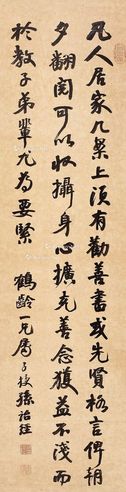 凡人居家几案上須有勸善書或先賢格言俾朝
夕翻閱可以收攝身心擴充善念獲益不淺而
於教子弟輩尤為要緊
鶴齡一兄屬子授孫詒經